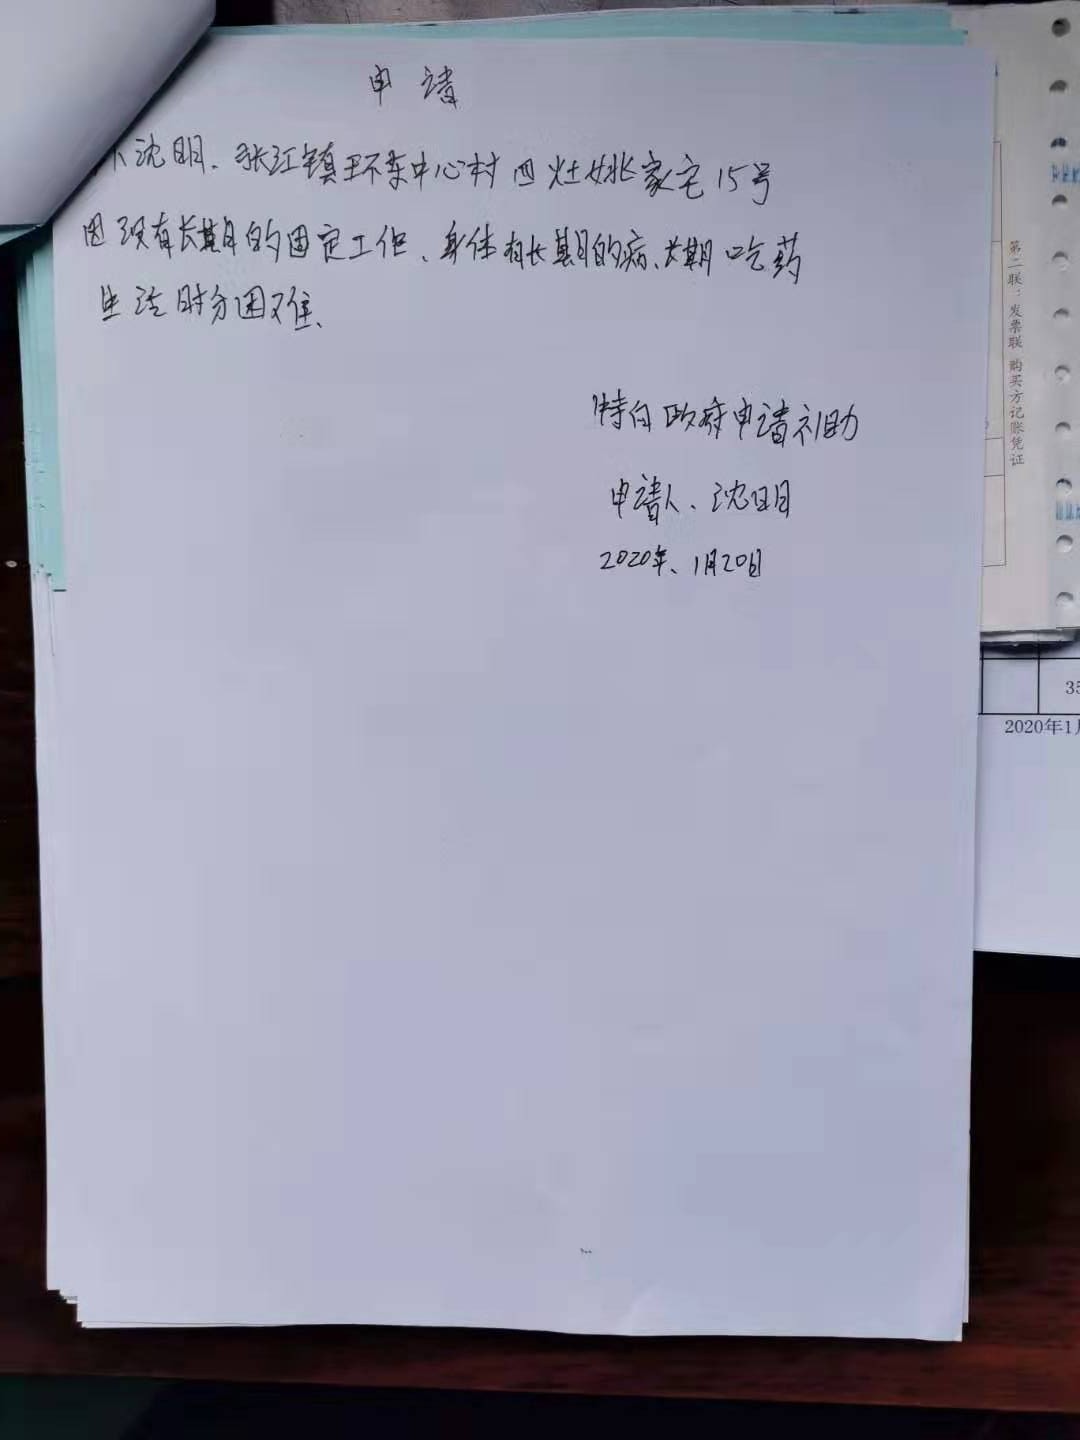 申请
沈明、张江镇环东中心村四灶姚家宅15号
因没有长期的固定工作、身体有长期的病、长期吃药
生活时分困难、
特向政府申请补助
申请人、沈明
2020年、1月20日
第二联：发票联 购买方记账凭证
35
2020年1月